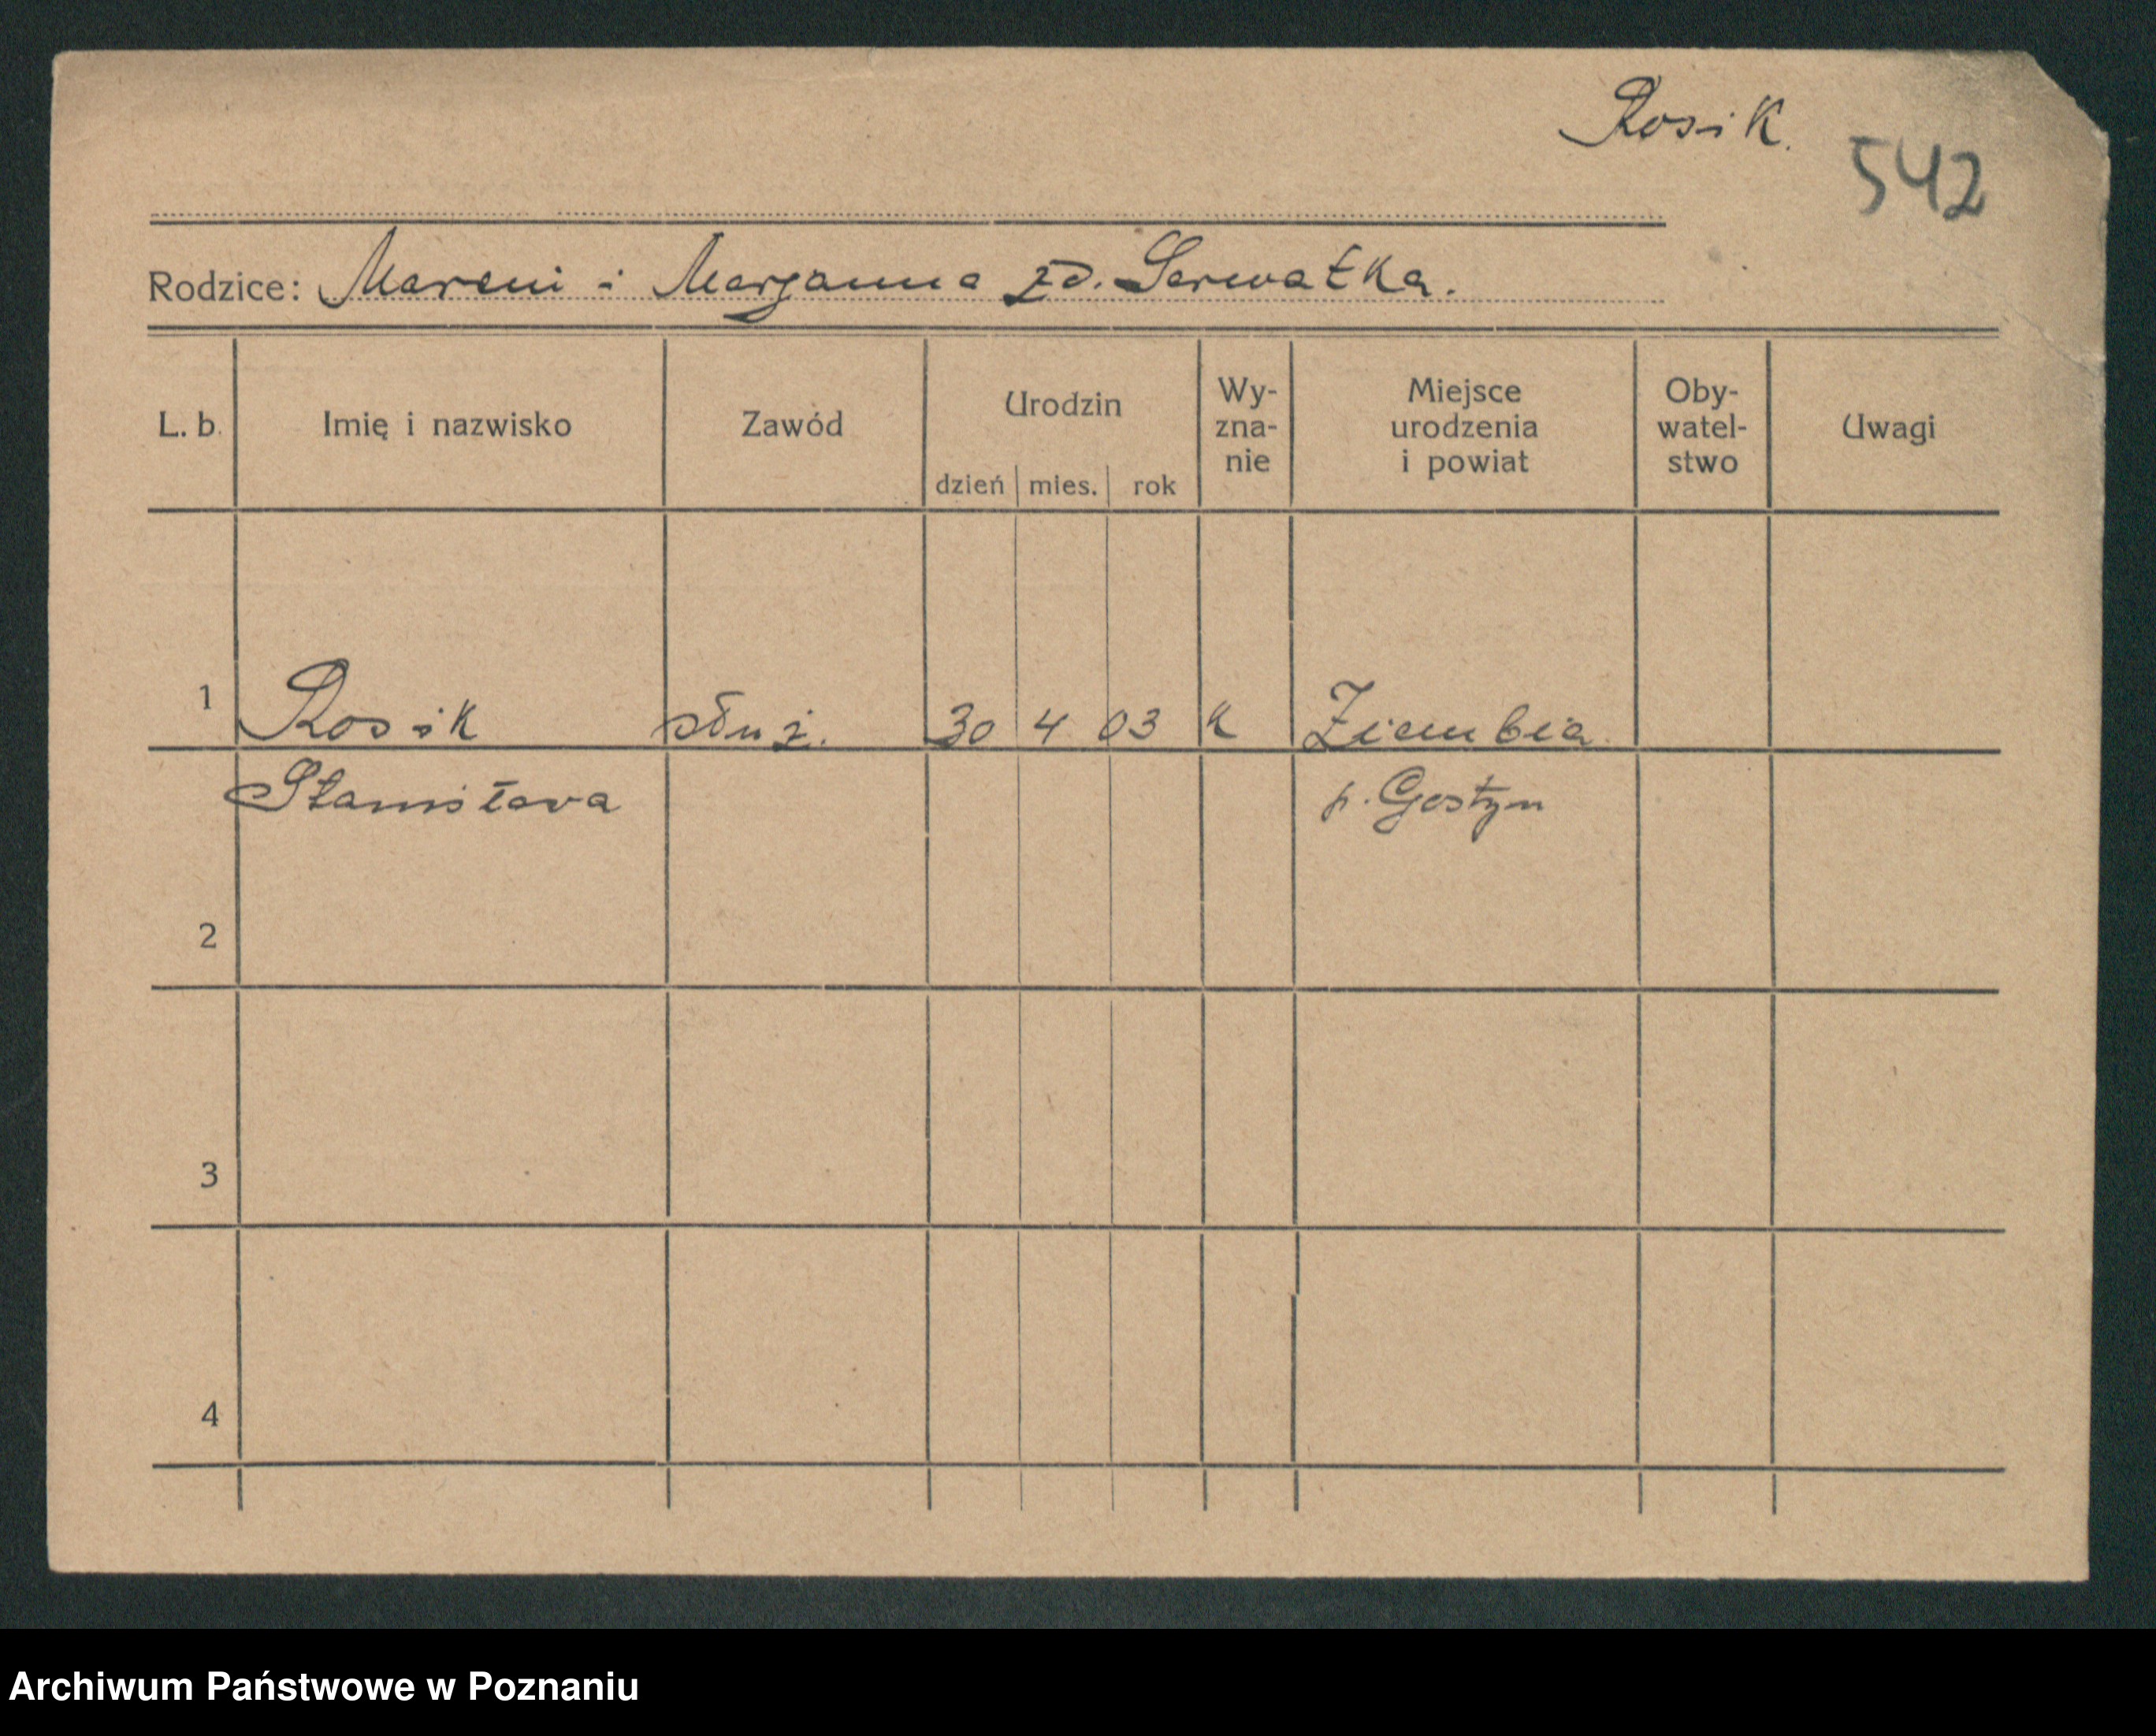 Rosik.
542
Rodzice: Marcin i Marjanna zd. Serwatka.
L. b. Imię i nazwisko Zawód Urodzin dzień mies. rok Wy-zna-nie Miejsce urodzenia i powiat Oby-watel-stwo Uwagi
1 Rosik służ. 30 4 03 K Ziembia
Stanisława p. Gostyn
2
3
4
Archiwum Państwowe w Poznaniu